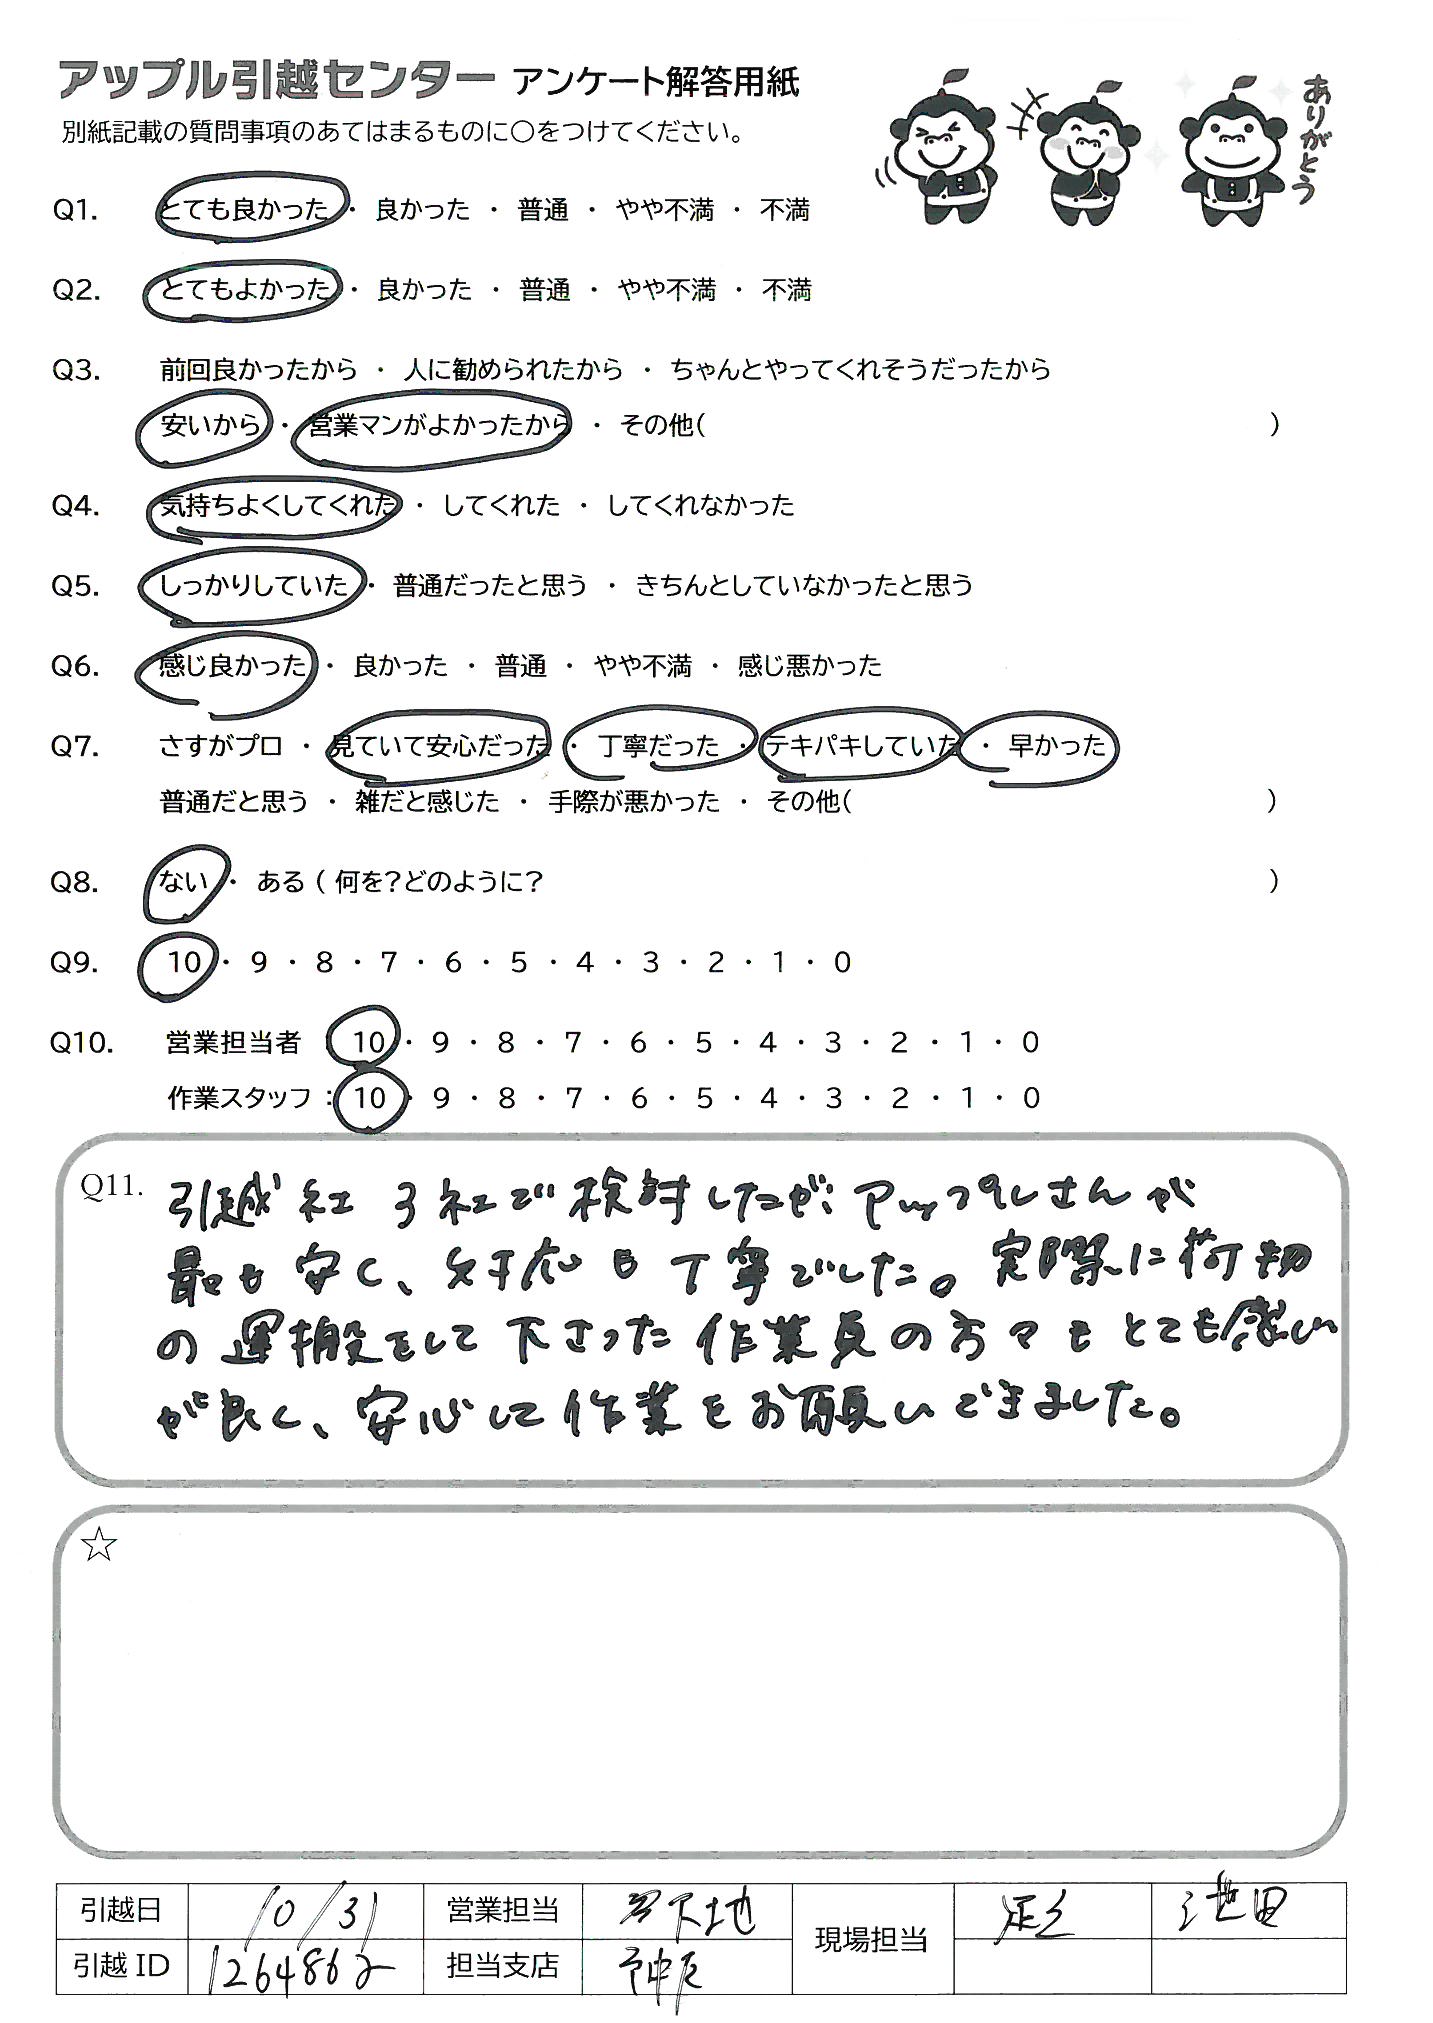 アップル引越センター アンケート解答用紙
別紙記載の質問事項のあてはまるものに○をつけてください。
ありがとう
Q1. とても良かった ・ 良かった ・ 普通 ・ やや不満 ・ 不満
Q2. とてもよかった ・ 良かった ・ 普通 ・ やや不満 ・ 不満
Q3. 前回良かったから ・ 人に勧められたから ・ ちゃんとやってくれそうだったから
安いから ・ 営業マンがよかったから ・ その他( )
Q4. 気持ちよくしてくれた ・ してくれた ・ してくれなかった
Q5. しっかりしていた ・ 普通だったと思う ・ きちんとしていなかったと思う
Q6. 感じ良かった ・ 良かった ・ 普通 ・ やや不満 ・ 感じ悪かった
Q7. さすがプロ ・ 見ていて安心だった ・ 丁寧だった ・ テキパキしていた ・ 早かった
普通だと思う ・ 雑だと感じた ・ 手際が悪かった ・ その他( )
Q8. ない ・ ある ( 何を?どのように? )
Q9. 10 ・ 9 ・ 8 ・ 7 ・ 6 ・ 5 ・ 4 ・ 3 ・ 2 ・ 1 ・ 0
Q10. 営業担当者 : 10 ・ 9 ・ 8 ・ 7 ・ 6 ・ 5 ・ 4 ・ 3 ・ 2 ・ 1 ・ 0
作業スタッフ : 10 ・ 9 ・ 8 ・ 7 ・ 6 ・ 5 ・ 4 ・ 3 ・ 2 ・ 1 ・ 0
Q11. 引越社 3社で検討したが、アップルさんが
最も安く、対応も丁寧でした。実際に荷物
の運搬をして下さった作業員の方々もとても感じ
が良く、安心して作業をお願いできました。
☆
引越日 10/31 営業担当 宮下地 現場担当 池田
引越ID 1264862 担当支店 神戸